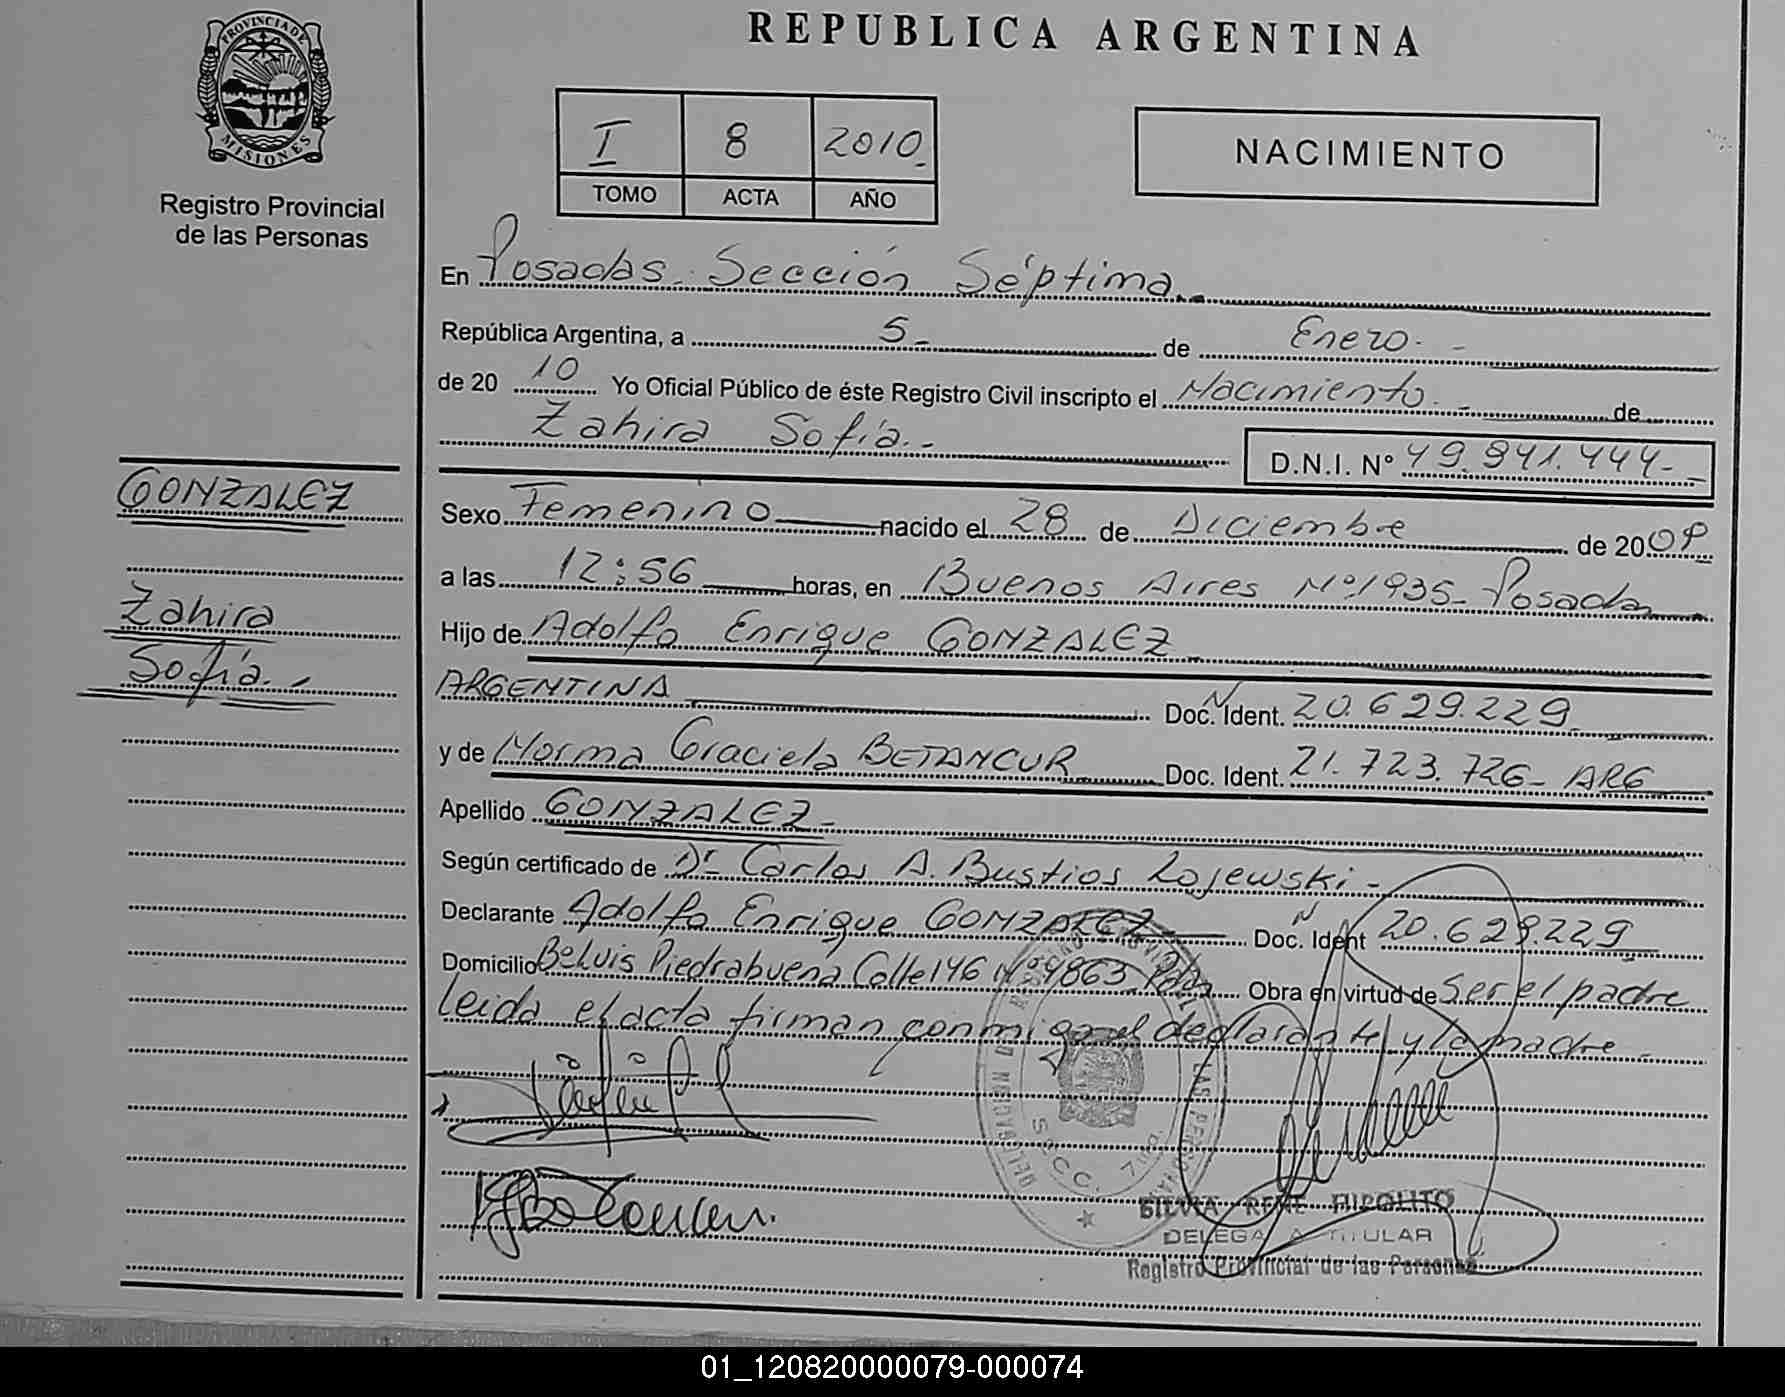 PROVINCIA DE
MISIONES
Registro Provincial
de las Personas
GONZALEZ
Zahira
Sofía.-
REPUBLICA ARGENTINA
I 8 2010.
TOMO ACTA AÑO
NACIMIENTO
En Posadas. Sección Séptima.-
República Argentina, a 5- de Enero.-
de 20 10 Yo Oficial Público de éste Registro Civil inscripto el Nacimiento.- de
Zahira Sofía.-
D.N.I. N° 49.941.444-
Sexo Femenino nacido el 28 de Diciembre de 20 09
a las 12:56 horas, en Buenos Aires Nº1935- Posadas
Hijo de Adolfo Enrique GONZALEZ
ARGENTINA Doc. Ident. 20.629.229
y de Norma Graciela BETANCUR Doc. Ident. 21.723.726- ARG
Apellido GONZALEZ-
Según certificado de Dr Carlos A. Bustios Lojewski-
Declarante Adolfo Enrique GONZALEZ Doc. Ident 20.629.229
Domicilio Belvis Piedrabuena Calle 146 Nº 4863 Pdas Obra en virtud de Ser el padre
leida el acta firman conmigo el declarante y la madre-
SECC. 7
SILVIA RENE HIPOLITO
DELEGADA TITULAR
Registro Provincial de las Personas
01_120820000079-000074